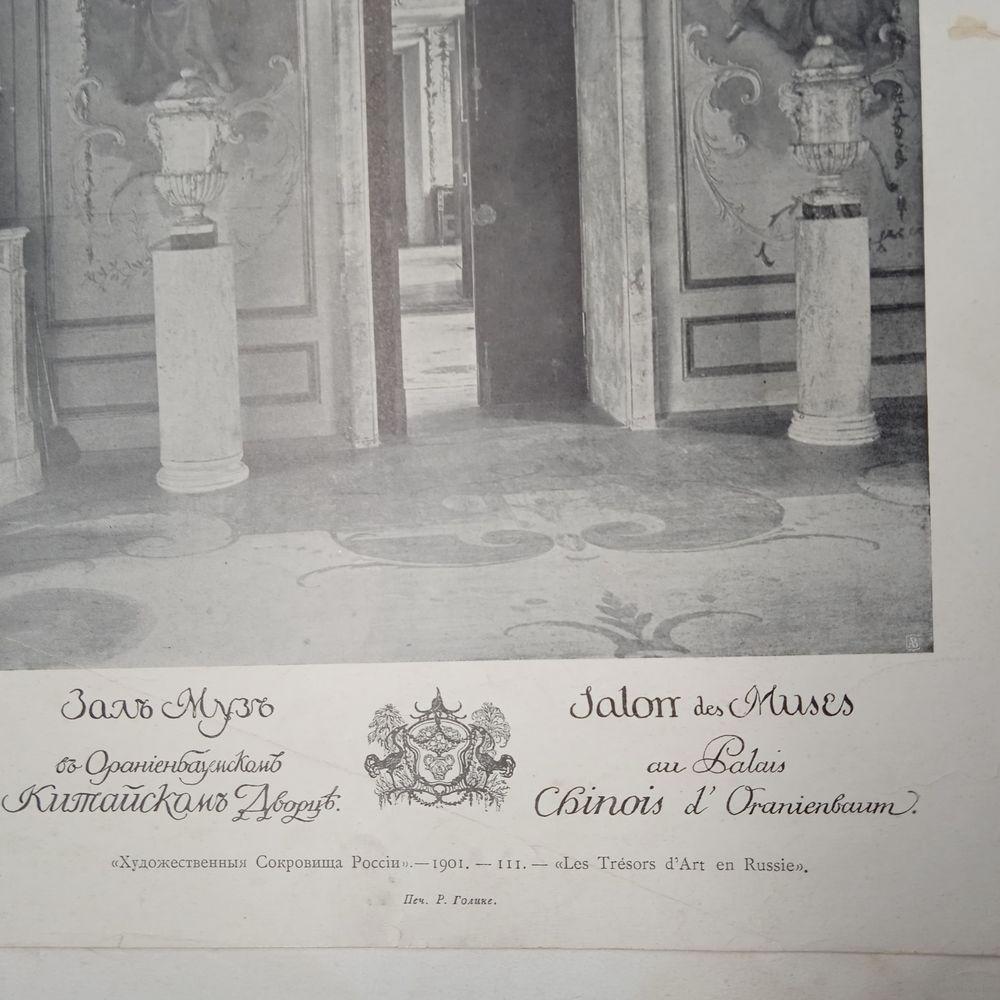 Залъ Музъ
въ Ораніенбаумскомъ
Китайскомъ Дворцѣ.
Salon des Muses
au Palais
Chinois d' Oranienbaum.
«Художественныя Сокровища Россіи».—1901. — 111. — «Les Trésors d'Art en Russie».
Печ. Р. Голике.